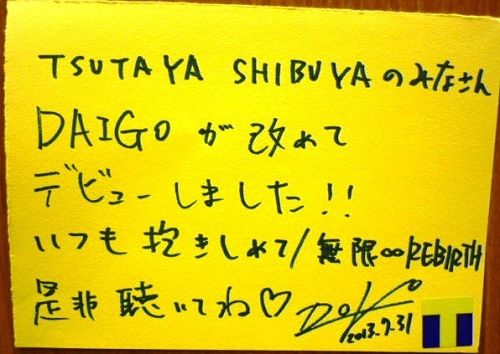 TSUTAYA SHIBUYAのみなさん
DAIGOが改めて
デビューしました!!
いつも抱きしめて/無限∞REBIRTH
是非聴いてね♡
2013.7.31